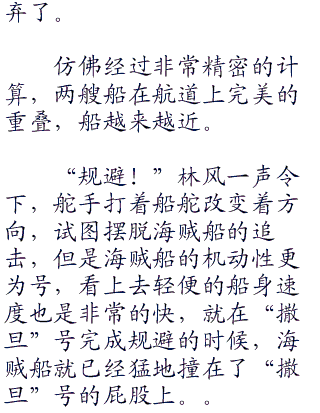 弃了。
仿佛经过非常精密的计
算，两艘船在航道上完美的
重叠，船越来越近。
“规避！”林风一声令
下，舵手打着船舵改变着方
向，试图摆脱海贼船的追
击，但是海贼船的机动性更
为号，看上去轻便的船身速
度也是非常的快，就在“撒
旦”号完成规避的时候，海
贼船就已经猛地撞在了“撒
旦”号的屁股上。。